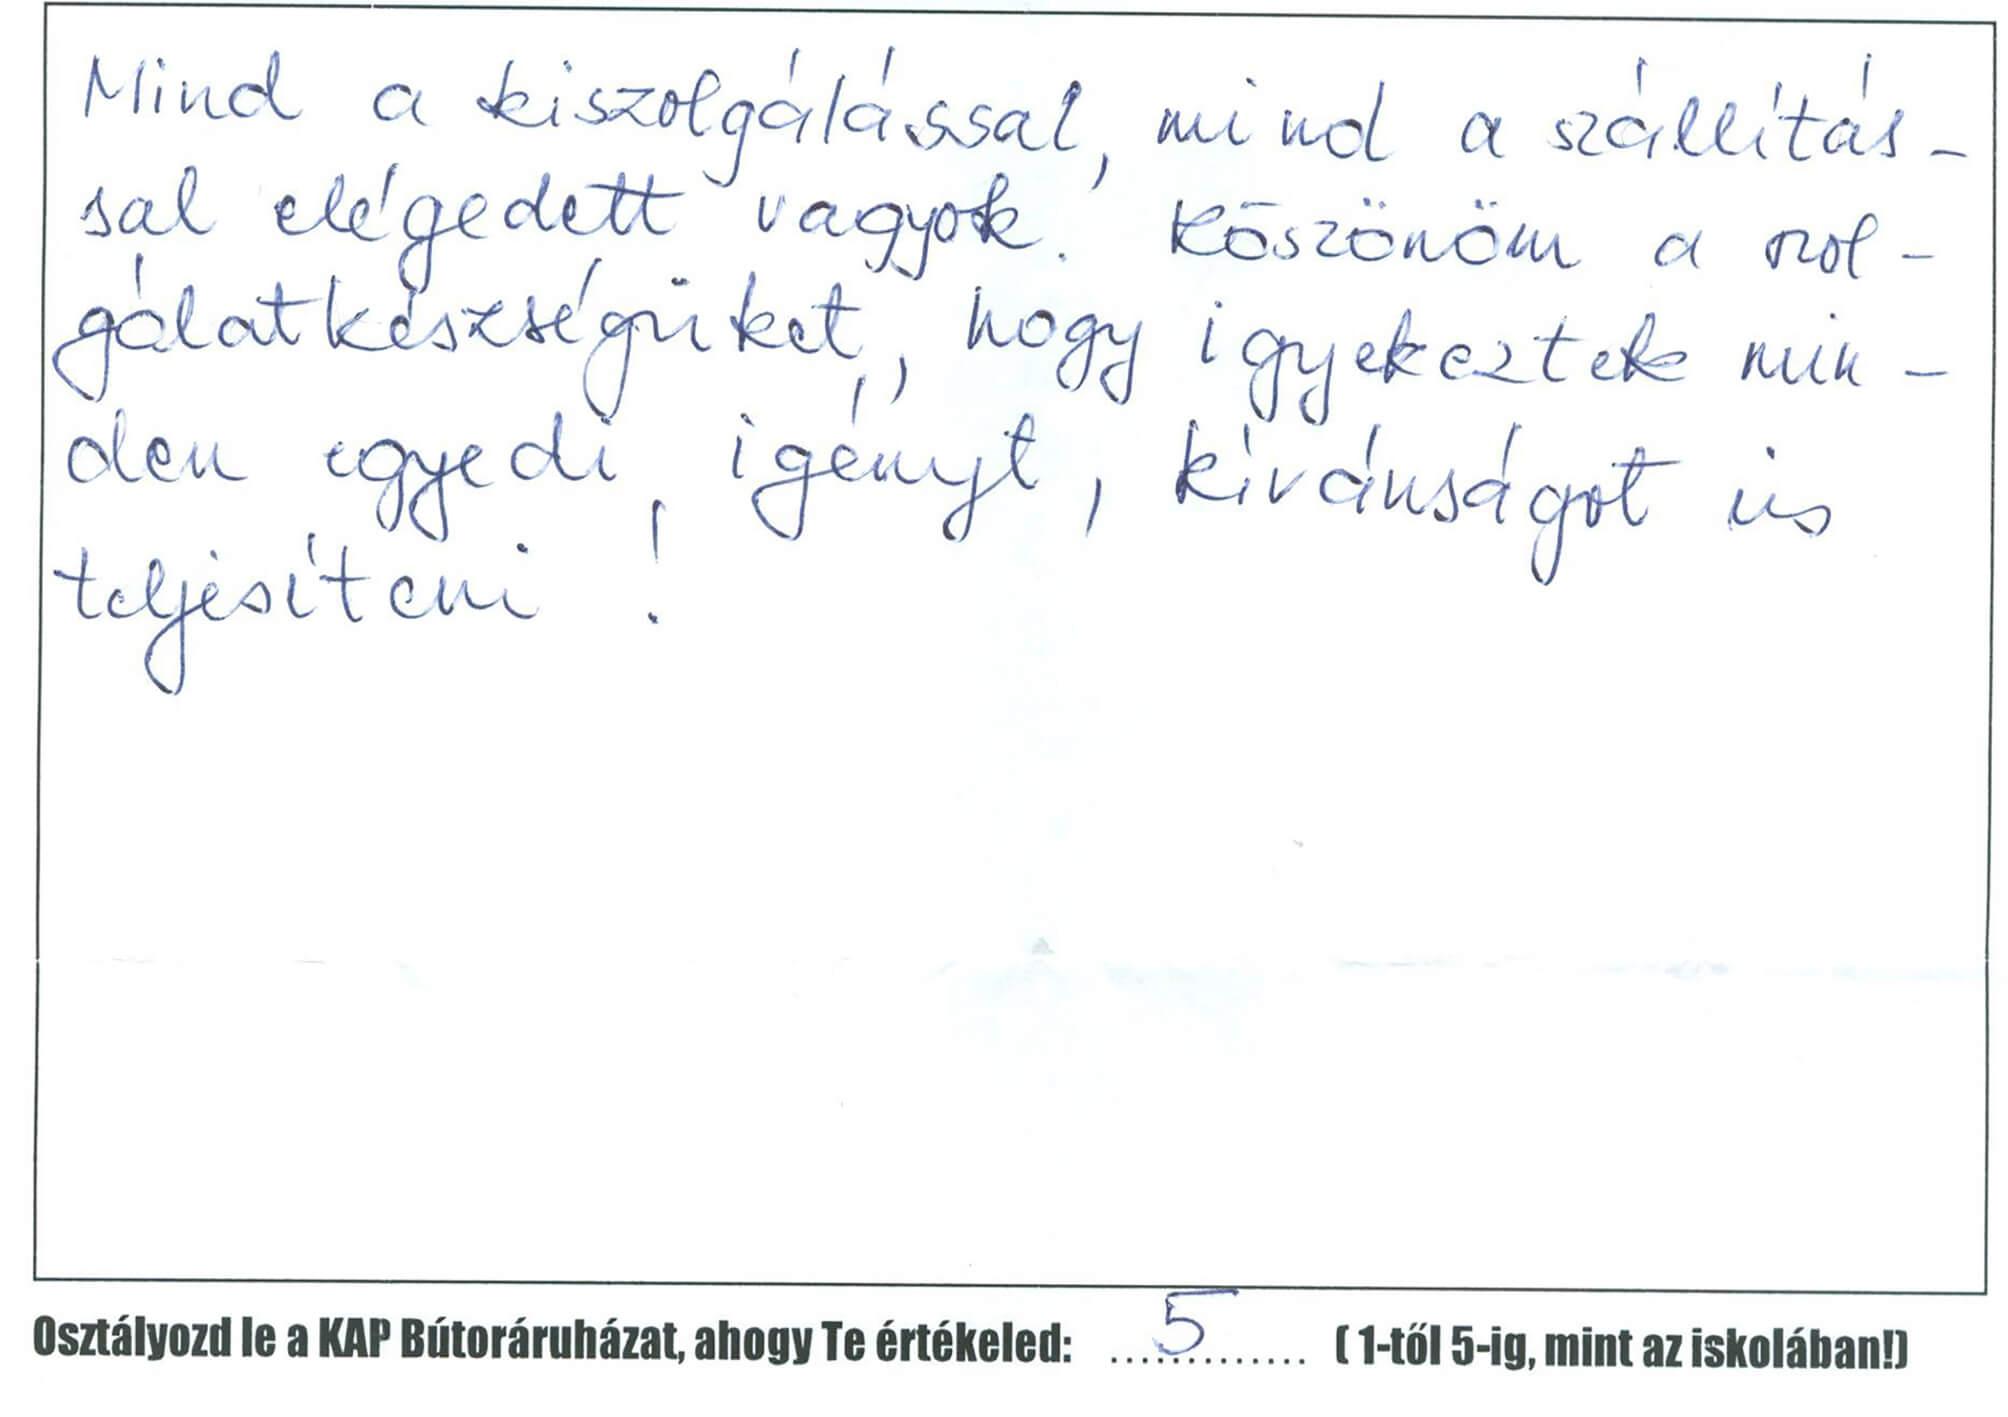 Mind a kiszolgálással, mind a szállítás-
sal elégedett vagyok. Köszönöm a szol-
gálatkészségüket, hogy igyekeztek min-
den egyedi igényt, kívánságot is
teljesíteni!
Osztályozd le a KAP Bútoráruházat, ahogy Te értékeled: .....5..... ( 1-től 5-ig, mint az iskolában!)